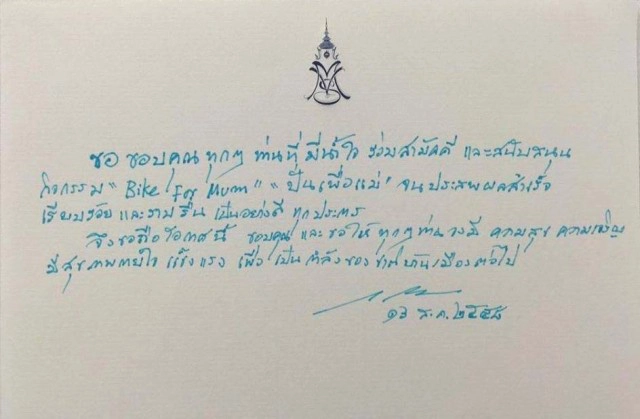 ขอ ขอบคุณ ทุกๆ ท่านที่ มีน้ำใจ ร่วมสามัคคี และสนับสนุน
กิจกรรม “Bike for Mom” “ปั่นเพื่อแม่” จนประสพผลสำเร็จ
เรียบร้อย และราบรื่น เป็นอย่างดี ทุกประการ
จึงขอถือโอกาสนี้ ขอบคุณ และขอให้ ทุกๆท่าน จงมี ความสุข ความเจริญ
มีสุขภาพกายใจ แข็งแรง เพื่อ เป็น กำลังของชาติบ้านเมืองต่อไป
๑๖ ส.ค. ๒๕๕๘